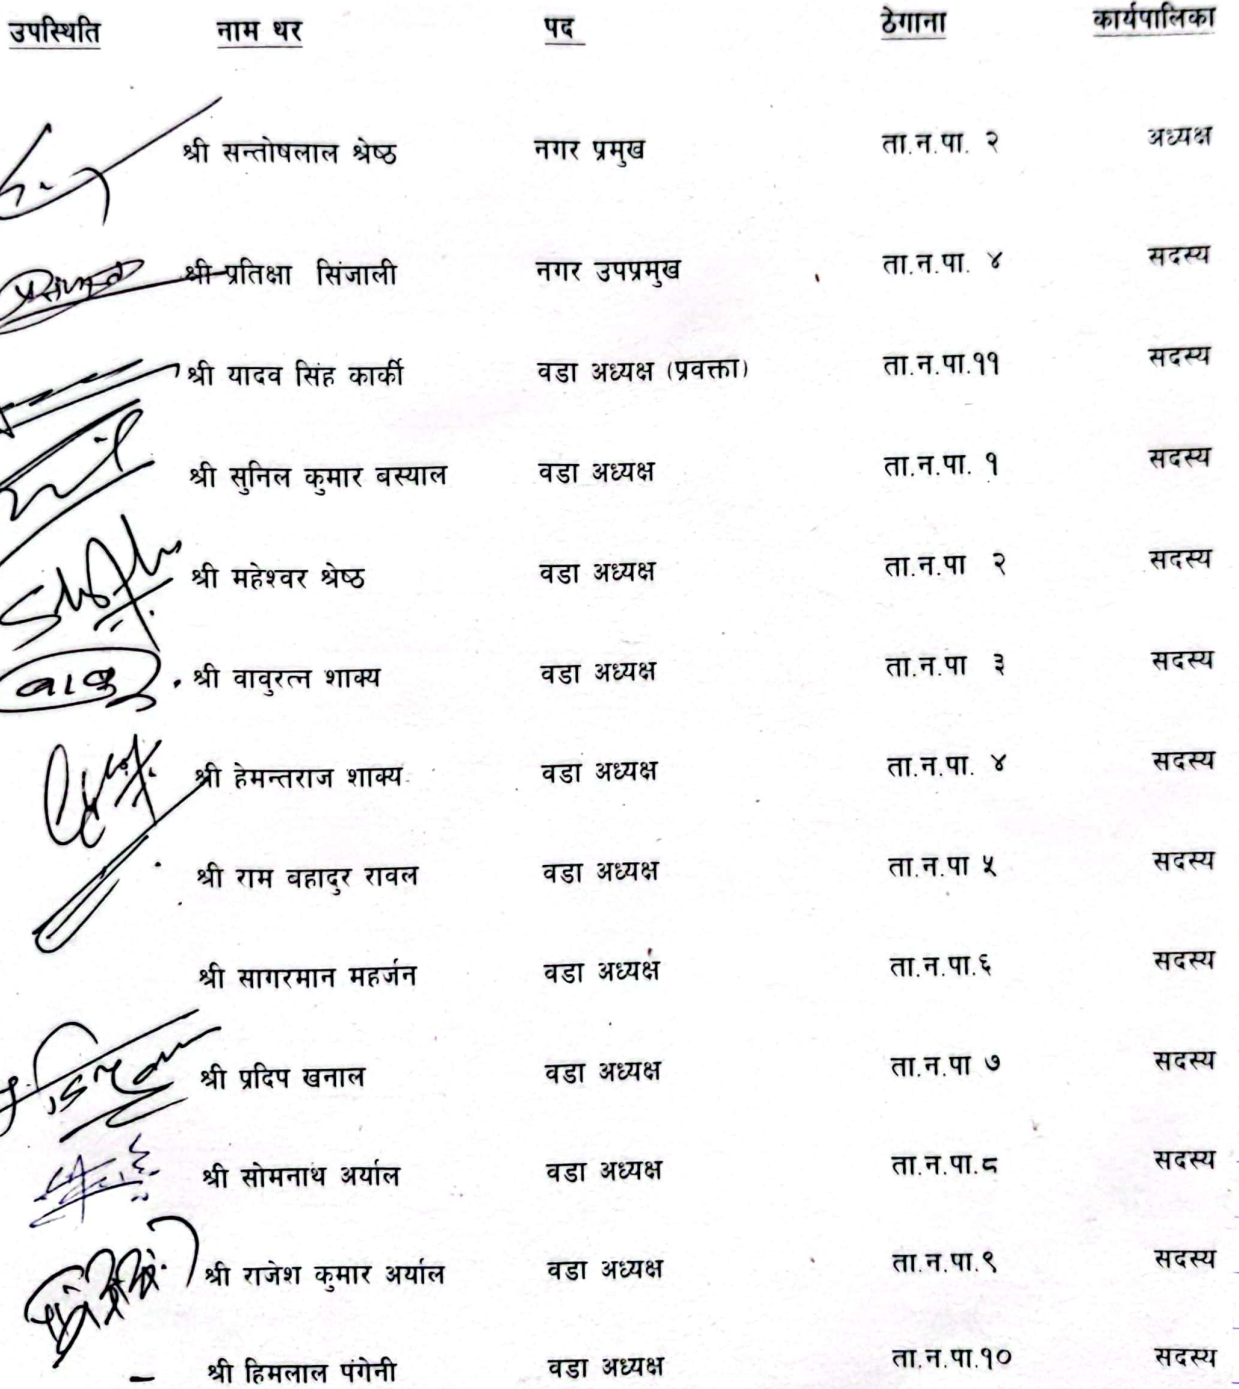 उपस्थिति नाम थर पद ठेगाना कार्यपालिका
श्री सन्तोषलाल श्रेष्ठ नगर प्रमुख ता.न.पा. २ अध्यक्ष
श्री प्रतिक्षा सिंजाली नगर उपप्रमुख ता.न.पा. ४ सदस्य
श्री यादव सिंह कार्की वडा अध्यक्ष (प्रवक्ता) ता.न.पा.११ सदस्य
श्री सुनिल कुमार बस्याल वडा अध्यक्ष ता.न.पा. १ सदस्य
श्री महेश्वर श्रेष्ठ वडा अध्यक्ष ता.न.पा २ सदस्य
बाबु श्री वावुरत्न शाक्य वडा अध्यक्ष ता.न.पा ३ सदस्य
श्री हेमन्तराज शाक्य वडा अध्यक्ष ता.न.पा. ४ सदस्य
श्री राम बहादुर रावल वडा अध्यक्ष ता.न.पा ५ सदस्य
श्री सागरमान महर्जन वडा अध्यक्ष ता.न.पा.६ सदस्य
श्री प्रदिप खनाल वडा अध्यक्ष ता.न.पा ७ सदस्य
श्री सोमनाथ अर्याल वडा अध्यक्ष ता.न.पा.८ सदस्य
श्री राजेश कुमार अर्याल वडा अध्यक्ष ता.न.पा.९ सदस्य
श्री हिमलाल पंगेनी वडा अध्यक्ष ता.न.पा.१० सदस्य